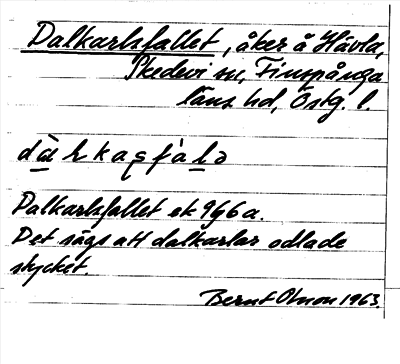 Dalkarlsfallet, åker å Hävla,
Skedevi sn, Finspånga
läns hd, Östg. l.
Dalkarlsfallet ek 9g6a.
Det sägs att dalkarlar odlade
stycket.
Bernt Olsson 1963.